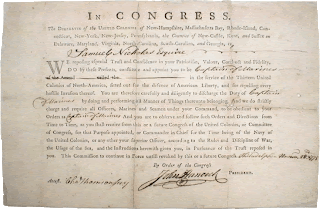 IN CONGRESS.
The DELEGATES of the UNITED COLONIES of New-Hampshire, Massachusetts-Bay, Rhode-Island, Connecticut, New-York, New-Jersey, Pennsylvania, the Counties of New-Castle, Kent, and Sussex on Delaware, Maryland, Virginia, North-Carolina, South-Carolina, and Georgia, to
Samuel Nicholas Esquire
WE reposing especial Trust and Confidence in your Patriotism, Valour, Conduct and Fidelity,
DO by these Presents, constitute and appoint you to be Captain of Marines
in the Service of the Thirteen United
Colonies of North-America, fitted out for the defence of American Liberty, and for repelling every
hostile Invasion thereof. You are therefore carefully and diligently to discharge the Duty of Captain of
Marines by doing and performing all Manner of Things thereunto belonging. And we do strictly
charge and require all Officers, Marines and Seamen under your Command, to be obedient to your
Orders as Captain of Marines And you are to observe and follow such Orders and Directions from
Time to Time, as you shall receive from this or a future Congress of the United Colonies, or Committee of
Congress, for that Purpose appointed, or Commander in Chief for the Time being of the Navy of
the United Colonies, or any other your superior Officer, according to the Rules and Discipline of War,
the Usage of the Sea, and the Instructions herewith given you, in Pursuance of the Trust reposed in
you. This Commission to continue in Force until revoked by this or a future Congress. Philadelphia
By Order of the Congress
John Hancock PRESIDENT.